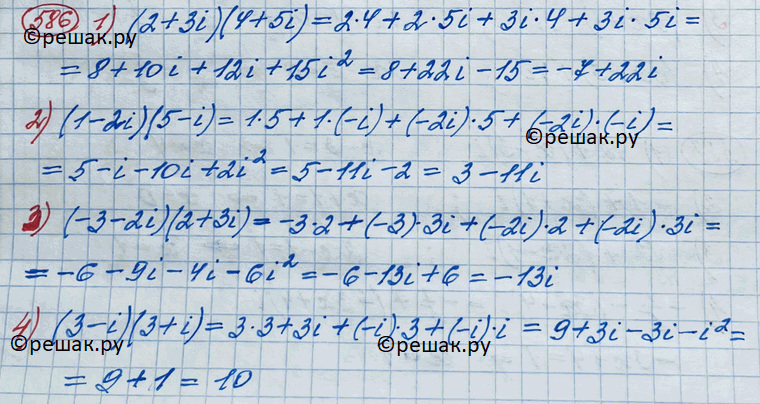 586 1) (2+3i)(4+5i)=2·4+2·5i+3i·4+3i·5i=
©решак.ру
=8+10i+12i+15i²=8+22i-15=-7+22i
2) (1-2i)(5-i)=1·5+1·(-i)+(-2i)·5+(-2i)·(-i)=
©решак.ру
=5-i-10i+2i²=5-11i-2=3-11i
3) (-3-2i)(2+3i)=-3·2+(-3)·3i+(-2i)·2+(-2i)·3i=
=-6-9i-4i-6i²=-6-13i+6=-13i
4) (3-i)(3+i)=3·3+3i+(-i)·3+(-i)·i=9+3i-3i-i²=
©решак.ру ©решак.ру
=9+1=10